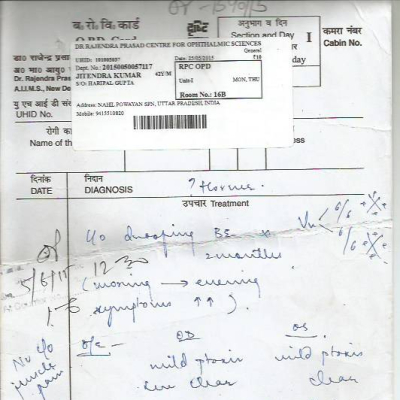 OP - 1340/5
ब. रो. वि. कार्ड
अनुभाग व दिन
Section and Day
I
कमरा नंबर
Cabin No.
DR RAJENDRA PRASAD CENTRE FOR OPHTHALMIC SCIENCES
General
Dept. No: 20150050057117
JITENDRA KUMAR 42Y/M
S/O: HARIPAL GUPTA
Date 25/05/2015
₹10
RPC OPD
Unit-I
MON, THU
Room No.: 16B
Address: NAHIL POWAYAN SPN, UTTAR PRADESH, INDIA
Mobile: 9415510820
डा० राजेन्द्र प्रसा
डा० भी
Dr. Rajendra Pra
A.I.I.M.S., New De
यू एच आई डी सं
UHID No.
रोगी का
Name of the
दिनांक
DATE
निदान
DIAGNOSIS
? Horner
उपचार Treatment
c/o drooping BE x
2 months
Vn 6/6
6/6
OP
5/6/15
12 30
(morning → evening
symptoms ↑↑).
1-6
No c/o
muscle
pain
o/e -
OD
OS
mild ptosis
mild ptosis
clear
clear